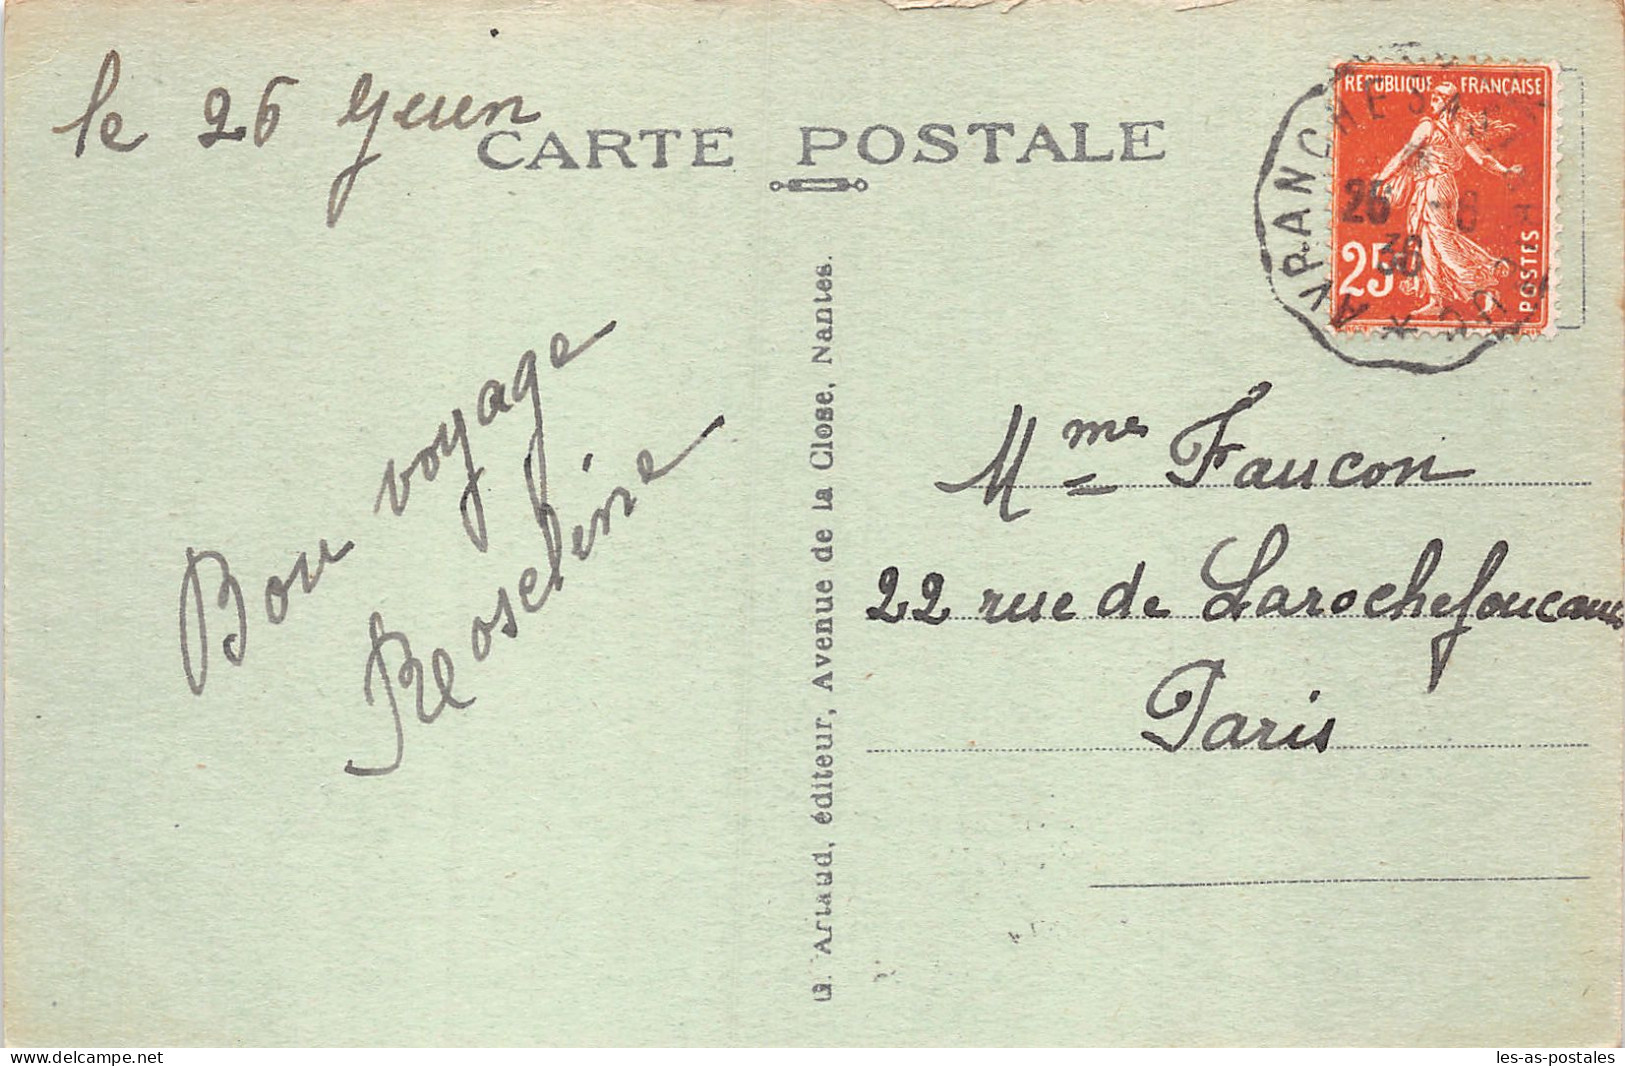 le 26 Juin
CARTE POSTALE
REPUBLIQUE FRANÇAISE
25
POSTES
AVRANCHES
26 -6
36
Bon voyage
Roseline
G. Artaud, éditeur, Avenue de la Close, Nantes.
Mme Faucon
22 rue de Larochefoucauld
Paris
www.delcampe.net
les-as-postales